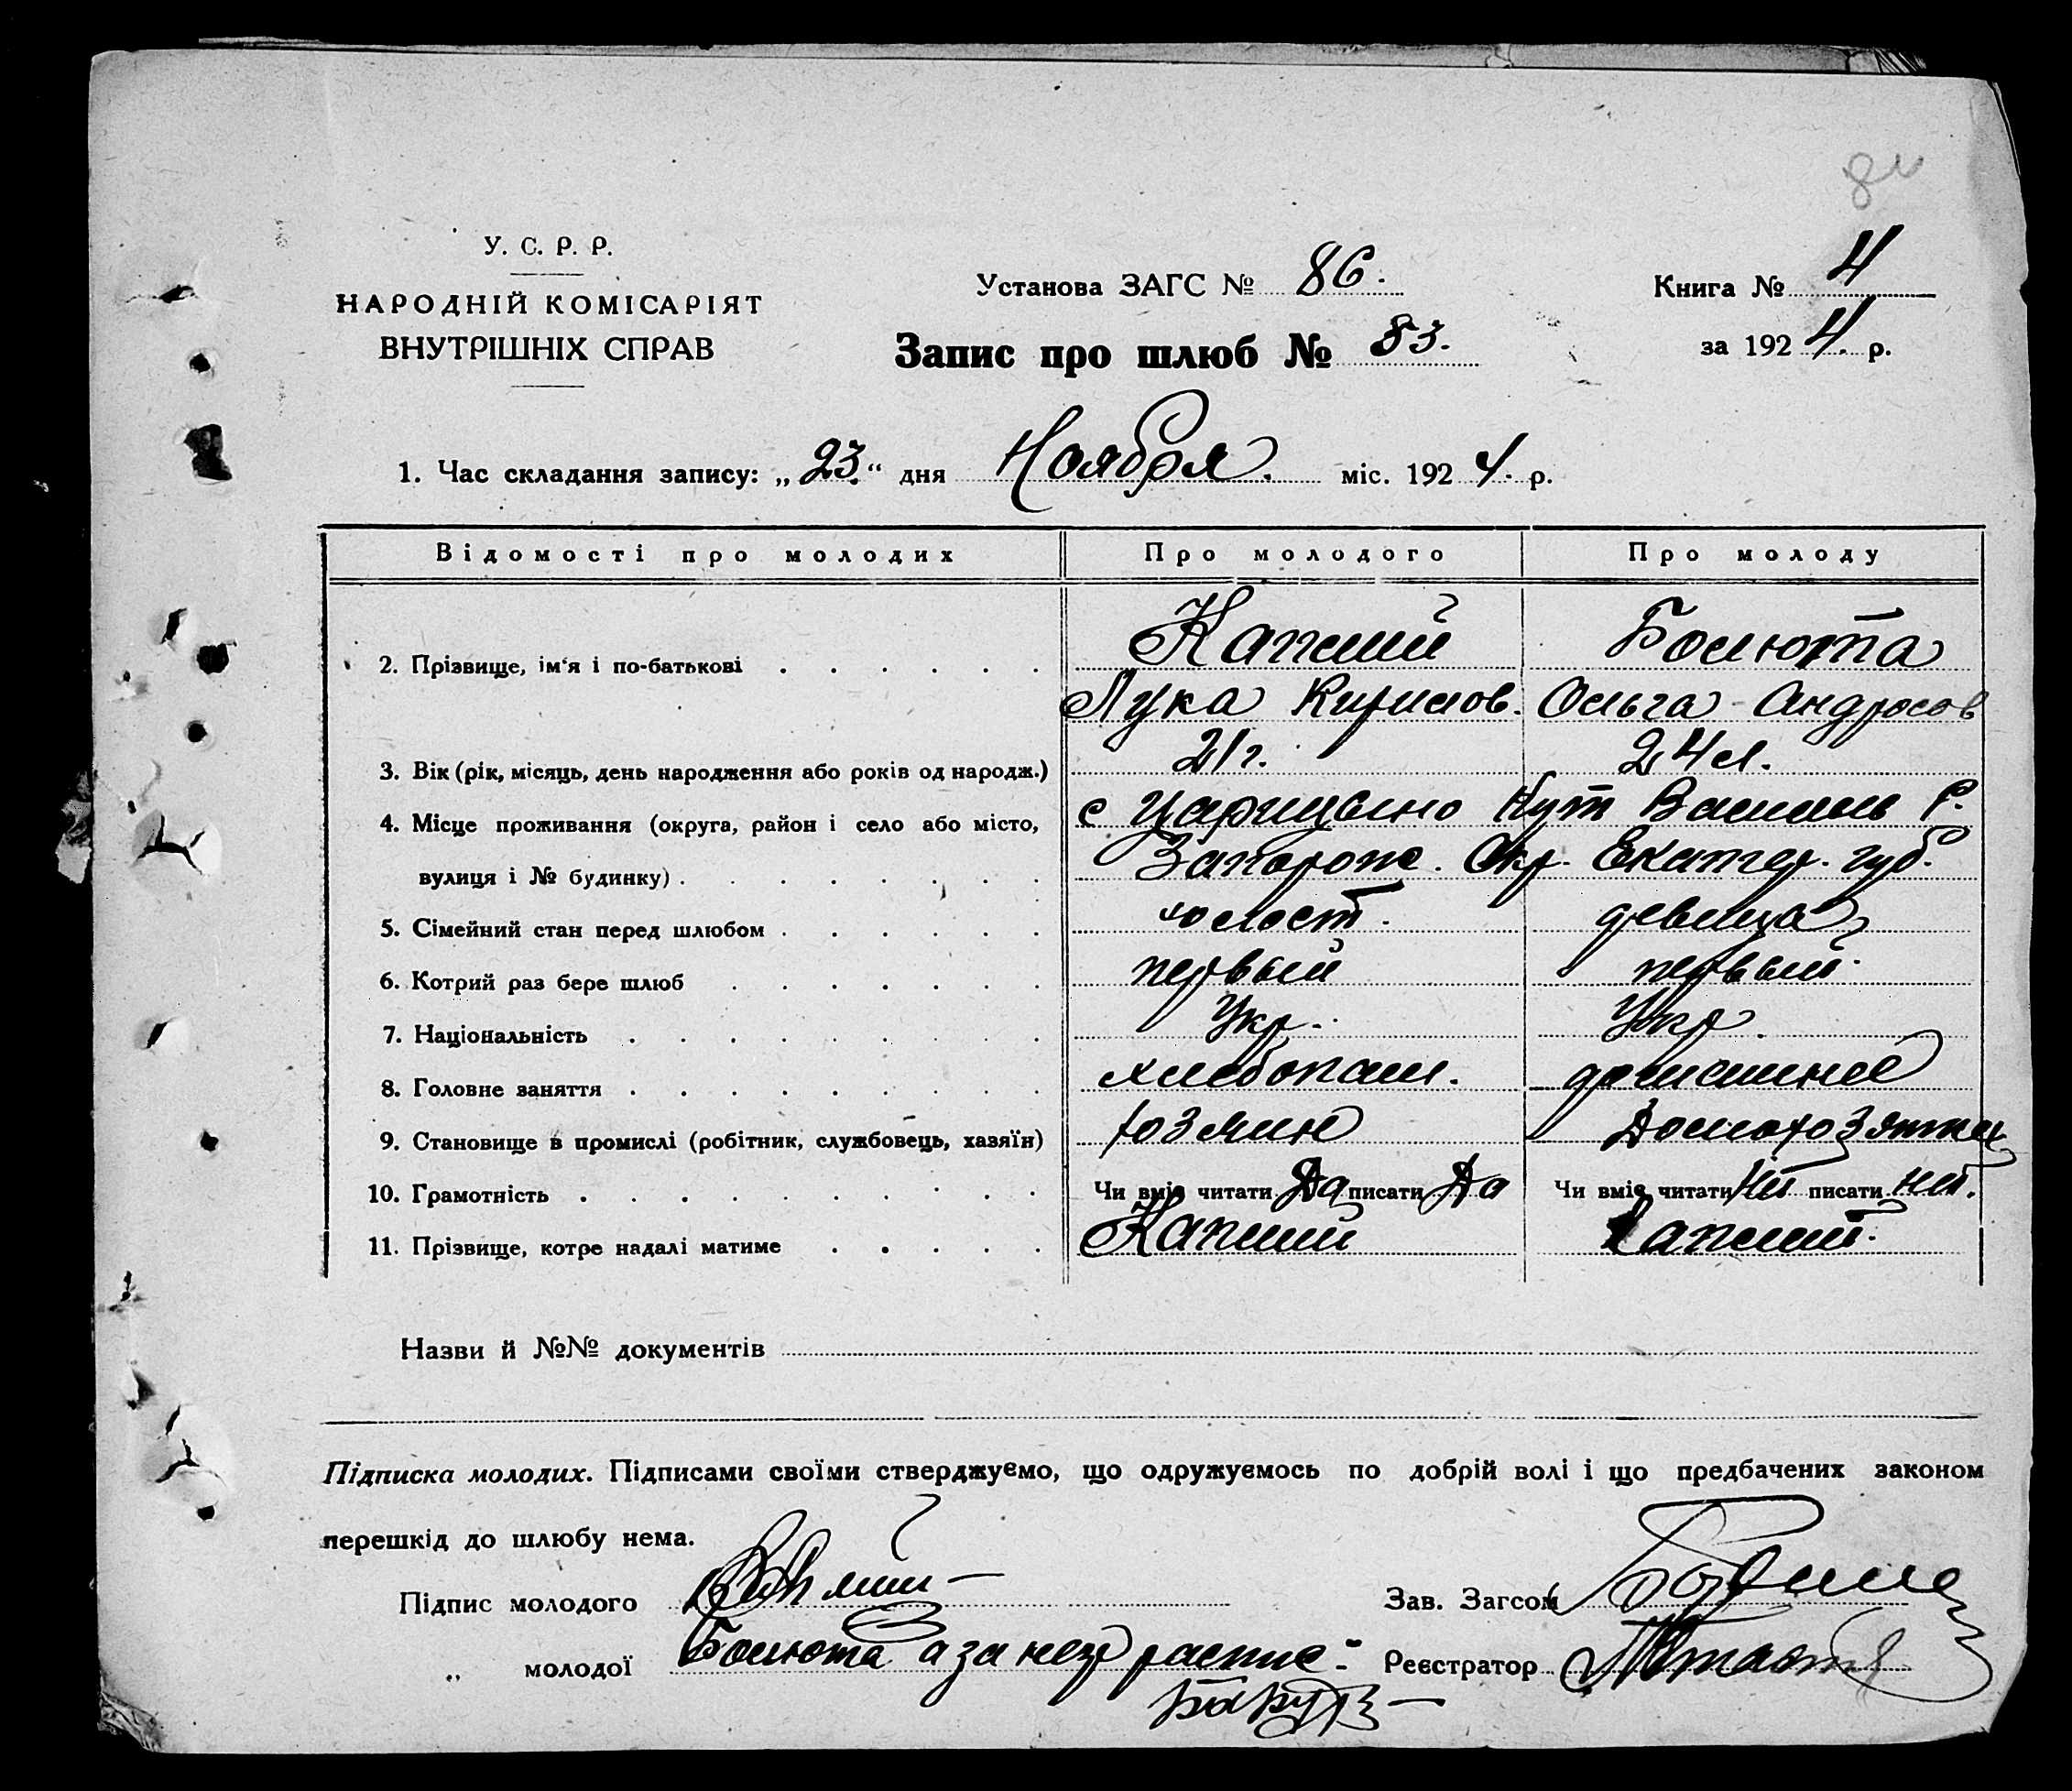 У. С. Р. Р.
НАРОДНІЙ КОМІСАРІЯТ
ВНУТРІШНІХ СПРАВ
Установа ЗАГС № 86.
Книга № 4
Запис про шлюб № 83.
за 1924. р.
1. Час складання запису: „23.“ дня Ноября. міс. 1924. р.
Відомості про молодих Про молодого Про молоду
2. Прізвище, ім‘я і по-батькові Капший Болюта
Лука Кирилов. Ольга Андросов
3. Вік (рік, місяць, день народження або років од народж.) 21 г. 24 л.
4. Місце проживання (округа, район і село або місто, с Царицыно Кут Васильв Р.
вулиця і № будинку) Запорож. Окр. Екатер. губ.
5. Сімейний стан перед шлюбом холост. девица
6. Котрий раз бере шлюб первый первый.
7. Національність Укр. Укр.
8. Головне заняття хлебопаш. домашнее
9. Становище в промислі (робітник, службовець, хазяїн) хозяин
10. Грамотність Чи вміє читати Да писати Да Чи вміє читати Нет писати нет.
11. Прізвище, котре надалі матиме Капший Капший.
Назви й №№ документів
Підписка молодих. Підписами своїми стверджуємо, що одружуємось по добрій волі і що предбачених законом
перешкід до шлюбу нема.
Підпис молодого
Зав. Загсом
„ молодої Болюта а за неё распис.
Реєстратор